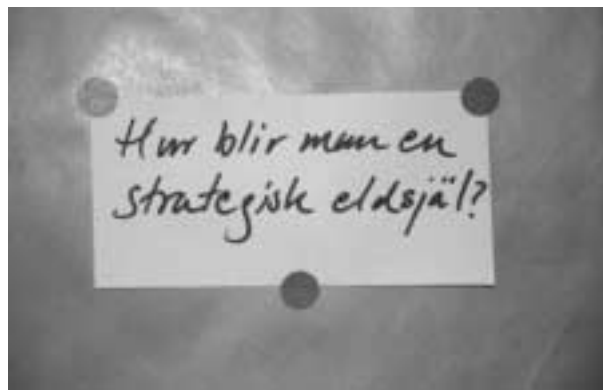 Hur blir man en
strategisk eldsjäl?